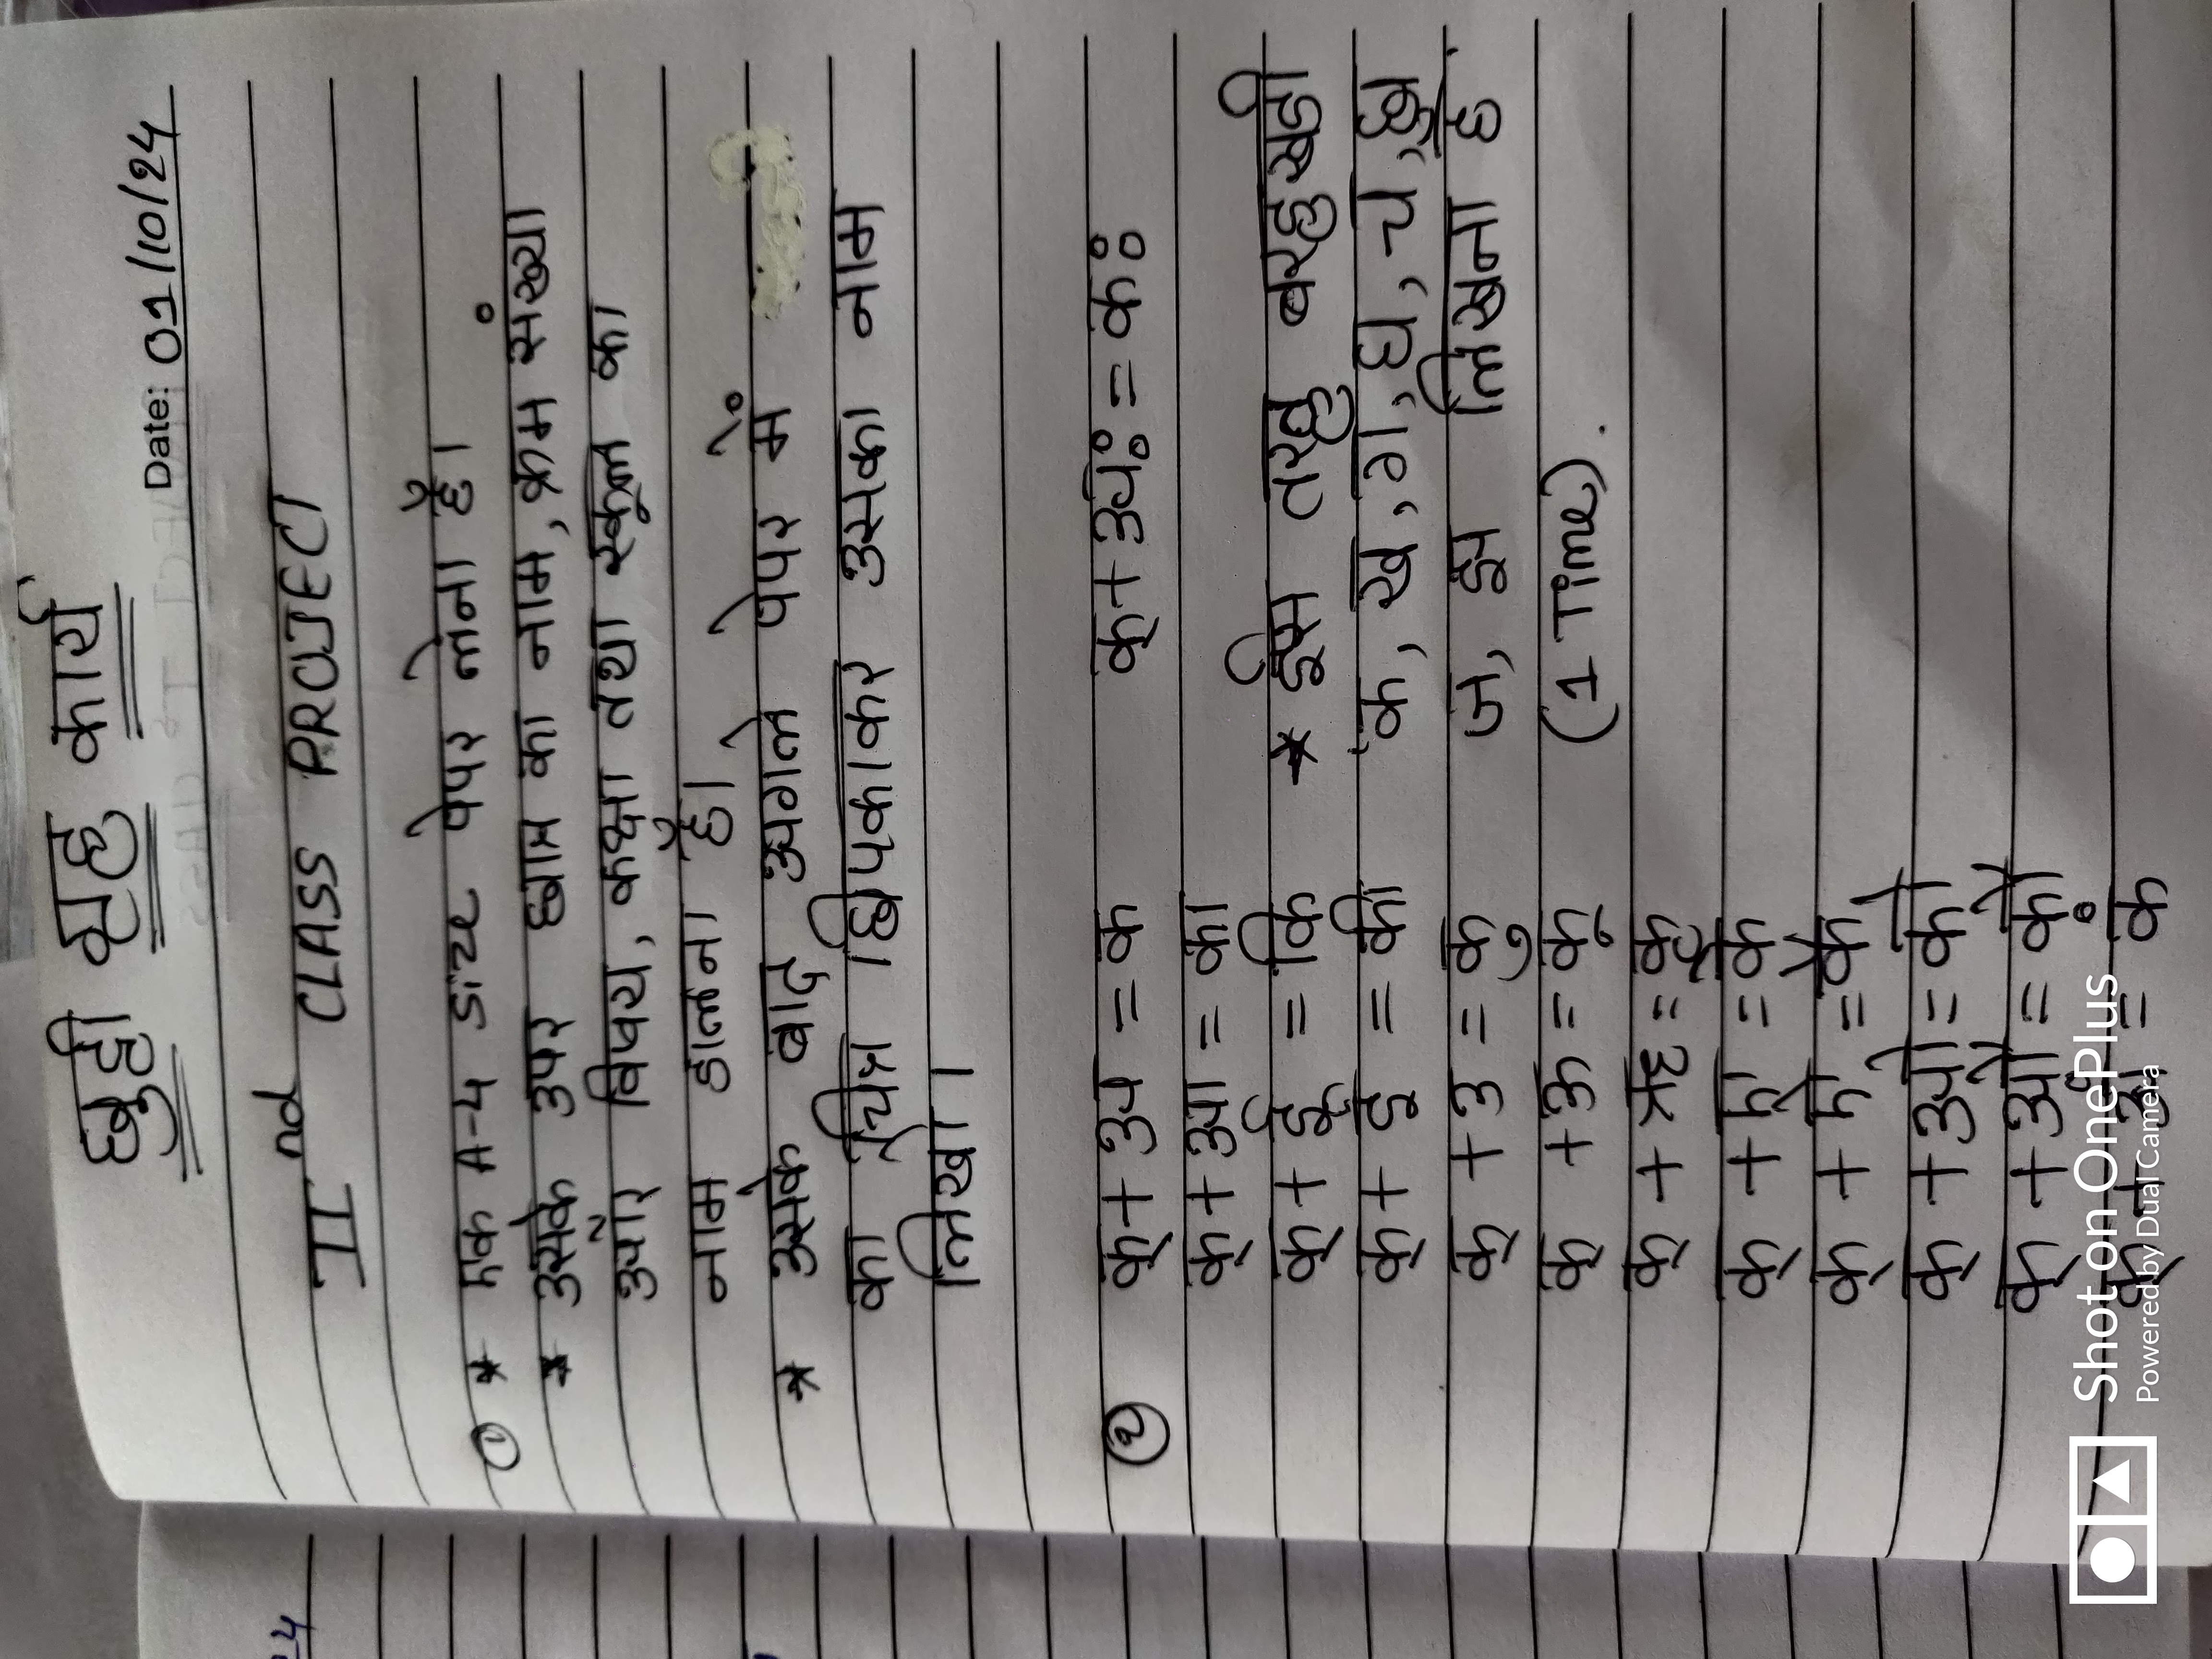 छुट्टी गृह कार्य
Date: 01/10/24
II nd CLASS PROJECT
① * एक A-4 साइज पेपर लेना है।
* उसके उपर छात्र का नाम, क्रम संख्या
विषय, कक्षा तथा स्कूल का
नाम डालना है।
* उसके बाद अगले पेपर में
का चित्र चिपकाकर उसका नाम
लिखो।
② क् + अ = क
क् + आ = का
क् + इ = कि
क् + ई = की
क् + उ = कु
क् + ऊ = कू
क् + ऋ = कृ
क् + ए = के
क् + ऐ = कै
क् + ओ = को
क् + औ = कौ
क् + अं = कं
क् + अः = कः
* इसी तरह बारहखड़ी
क, ख, ग, घ, च, छ
ज, झ लिखना है.
(1 Time).
Shot on OnePlus
Powered by Dual Camera
24